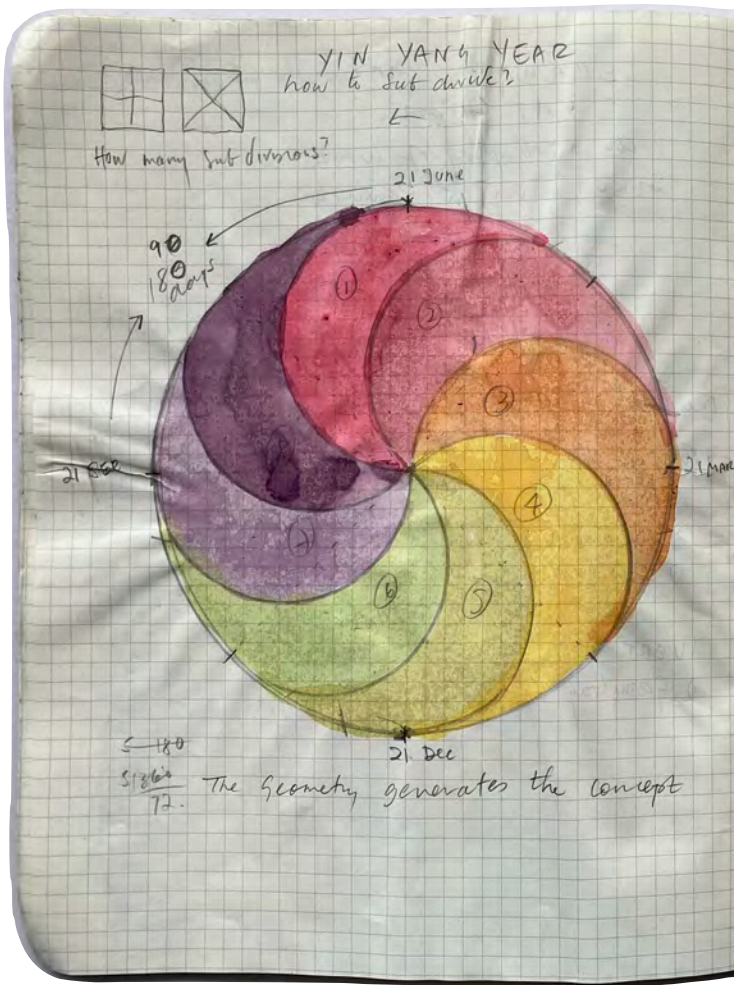 YIN YANG YEAR
how to Sub divide?
How many Sub divisions?
21 June
90
180
days
1
2
3
21 SEP
21 MAR
4
7
6
5
21 Dec
5 180
5 360
72.
The Geometry generates the concept